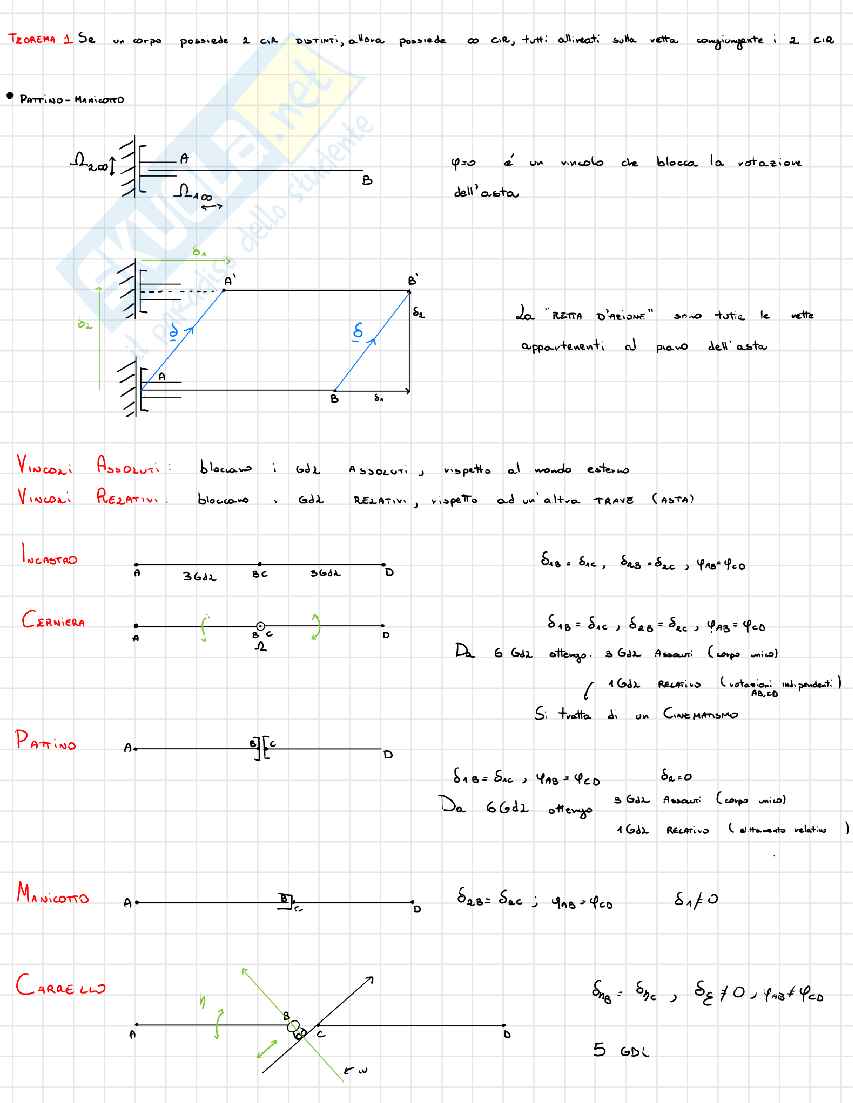 TEOREMA 1 Se un corpo possiede 2 CIR DISTINTI, allora possiede ∞ CIR, tutti allineati sulla retta congiungente i 2 CIR
• PATTINO-MANICOTTO
Ω2∞ A
B
Ω1∞
φ=0 é un vincolo che blocca la rotazione
dell'asta
δ1
A' B'
δ2 δ δ δ2
A
B δ1
La "RETTA D'AZIONE" sono tutte le rette
appartenenti al piano dell'asta
VINCOLI ASSOLUTI: bloccano i Gdl ASSOLUTI, rispetto al mondo esterno
VINCOLI RELATIVI: bloccano i Gdl RELATIVI, rispetto ad un'altra TRAVE (ASTA)
INCASTRO A 3Gdl BC 3Gdl D δ1B = δ1C, δ2B = δ2C, φAB=φCD
CERNIERA A B C D Ω δ1B = δ1C, δ2B = δ2C, φAB = φCD
Da 6 Gdl ottengo: 3 Gdl ASSOLUTI (corpo unico)
1 Gdl RELATIVO (rotazioni indipendenti)
AB,CD
Si tratta di un CINEMATISMO
PATTINO A B C D
δ1B = δ1C, φAB = φCD δ2=0
Da 6Gdl ottengo 3 Gdl ASSOLUTI (corpo unico)
1 Gdl RELATIVO (slittamento relativo)
MANICOTTO A B C D δ2B = δ2C ; φAB = φCD δ1≠0
CARRELLO η A B C D δηB = δηC, δξ≠0, φAB≠φCD
5 GDL
EKUOLA.net
il paradiso dello studente